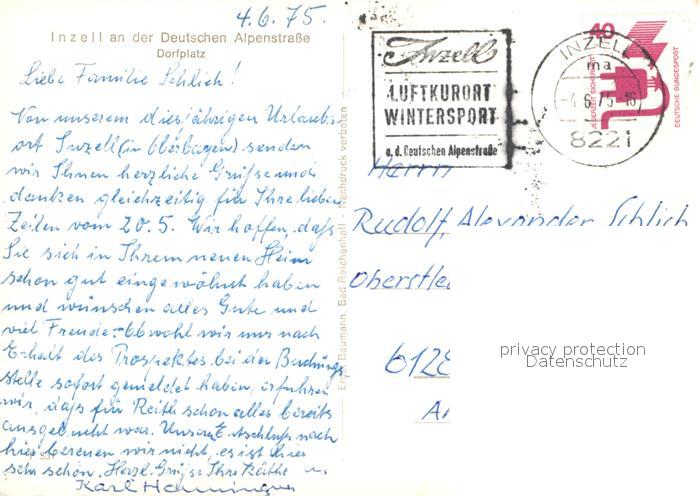 4.6.75.
Inzell an der Deutschen Alpenstraße
Dorfplatz
Liebe Familie Schlich!
Von unserem diesjährigen Urlaubs-
ort Inzell (in Oberbayern) senden
wir Ihnen herzliche Grüße und
danken gleichzeitig für Ihre lieben
Zeilen vom 20.5. Wir hoffen, daß
Sie sich in Ihrem neuen Heim
schon gut eingewöhnt haben
und wünschen alles Gute und
viel Freude. Obwohl wir uns nach
Erhalt des Prospektes bei der Buchungs-
stelle sofort gemeldet haben, erfuhren
wir, daß für Reith schon alles bereits
ausgebucht war. Unseren Entschluß nach
hier bereuen wir nicht, es ist hier
sehr schön. Herzl. Grüße Ihre Käthe u.
Karl
Baumann, Bad Reichenhall - Nachdruck verboten
Inzell
LUFTKURORT
WINTERSPORT
a.d. Deutschen Alpenstraße
INZELL
ma
-4.6.75-16
8221
40
JEDERZEIT SICHERHEIT
DEUTSCHE BUNDESPOST
Herrn
Rudolf, Alexander Schlich
Oberstle
612
privacy protection
Datenschutz